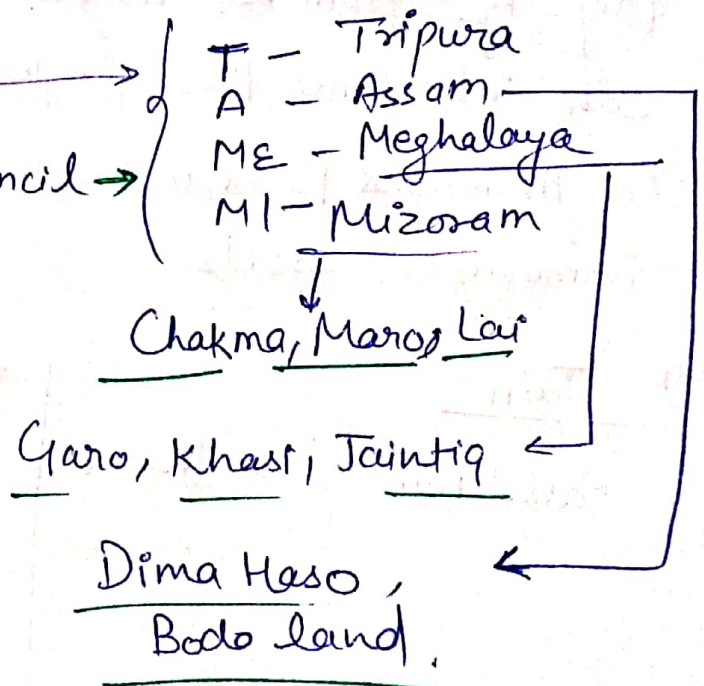 T - Tripura
A - Assam
ME - Meghalaya
ncil →
MI - Mizoram
Chakma, Maros Lai
Garo, Khasi, Jaintia
Dima Haso,
Bodo land.